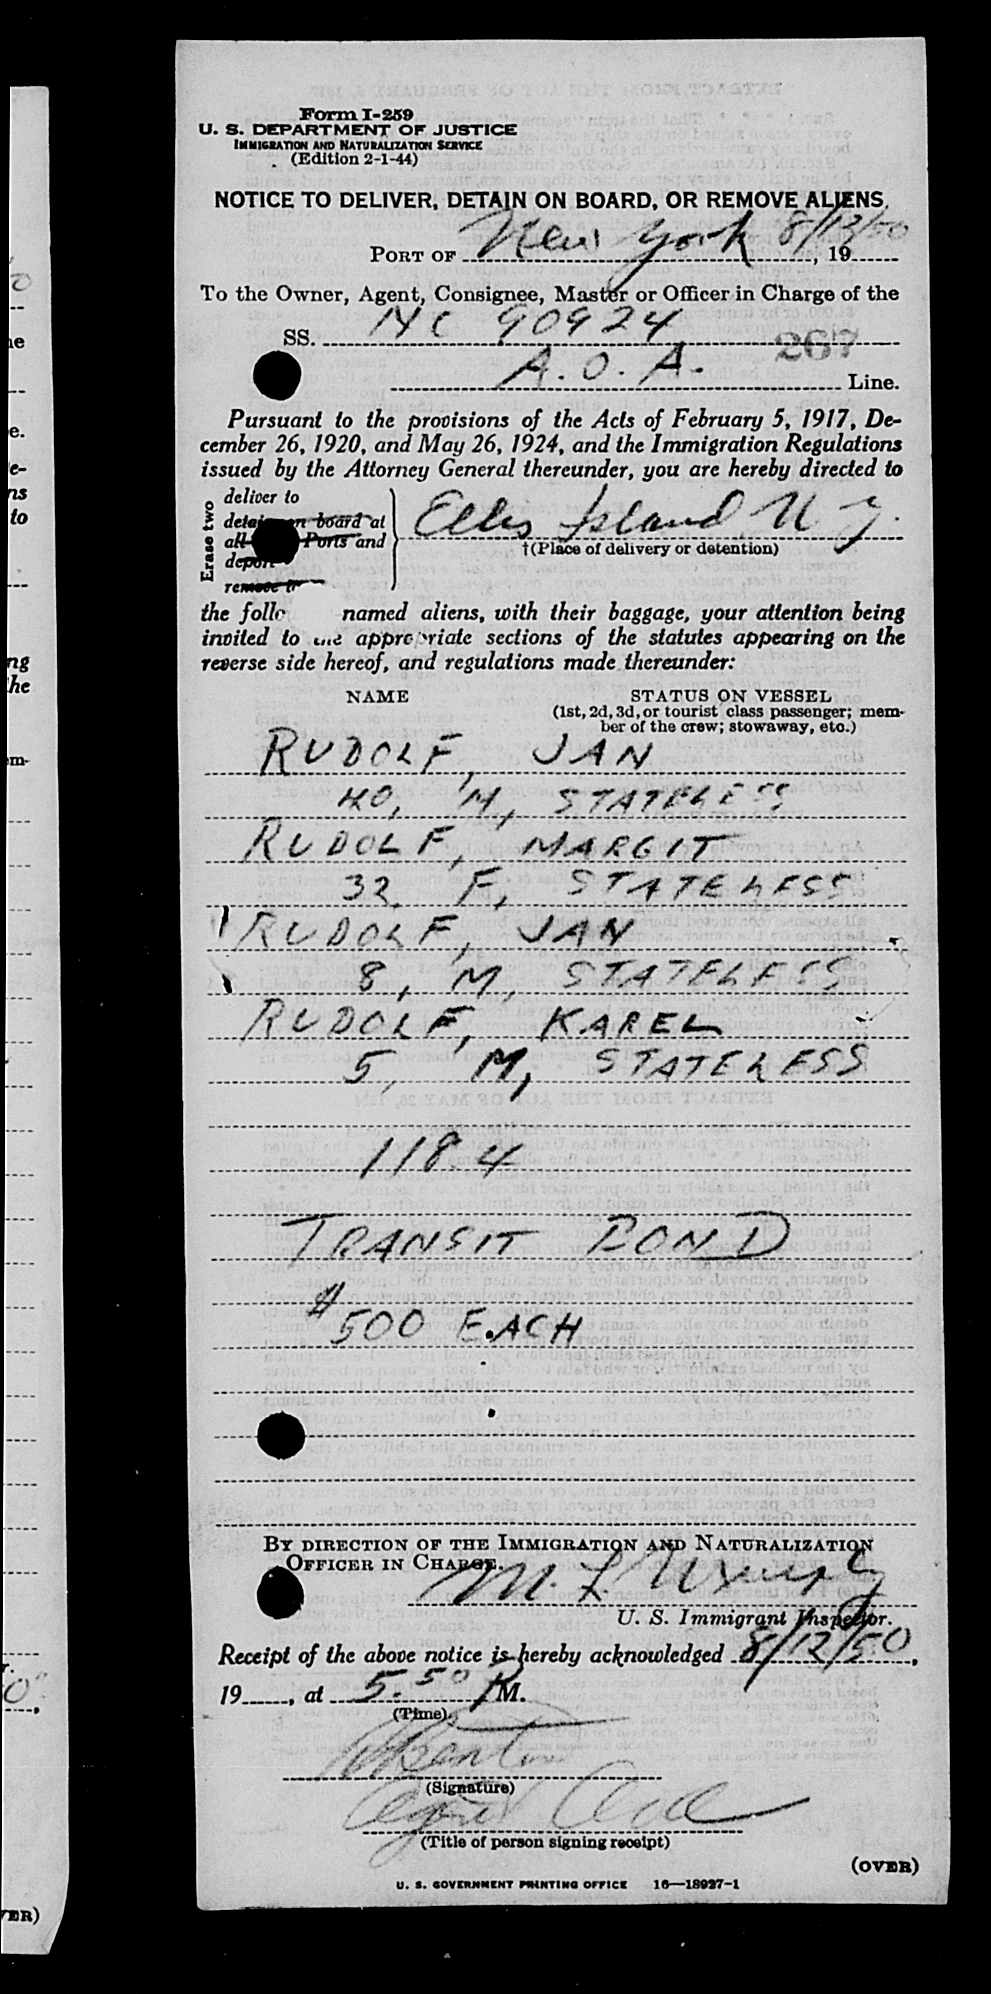 Form I-259
U. S. DEPARTMENT OF JUSTICE
IMMIGRATION AND NATURALIZATION SERVICE
(Edition 2-1-44)
NOTICE TO DELIVER, DETAIN ON BOARD, OR REMOVE ALIENS.
PORT OF New York 8/12/50, 19
To the Owner, Agent, Consignee, Master or Officer in Charge of the
SS. NC 90924
267
A. O. A. Line.
Pursuant to the provisions of the Acts of February 5, 1917, De-
cember 26, 1920, and May 26, 1924, and the Immigration Regulations
issued by the Attorney General thereunder, you are hereby directed to
Erase two
deliver to
detain on board at
all Ports and
deport
remove to
Ellis Island N Y.
†(Place of delivery or detention)
the follo named aliens, with their baggage, your attention being
invited to the appropriate sections of the statutes appearing on the
reverse side hereof, and regulations made thereunder:
NAME STATUS ON VESSEL
(1st, 2d, 3d, or tourist class passenger; mem-
ber of the crew; stowaway, etc.)
RUDOLF, JAN
40, M, STATELESS
RUDOLF, MARGIT
32, F, STATELESS
RUDOLF, JAN
8, M, STATELESS
RUDOLF, KAREL
5, M, STATELESS
118.4
TRANSIT BOND
$500 EACH
BY DIRECTION OF THE IMMIGRATION AND NATURALIZATION
OFFICER IN CHARGE.
M. L. Murphy
U. S. Immigrant Inspector.
Receipt of the above notice is hereby acknowledged 8/12/50,
19, at 5.50 PM.
(Time)
(Signature)
Agent
(Title of person signing receipt)
(OVER)
U. S. GOVERNMENT PRINTING OFFICE 16—18927-1